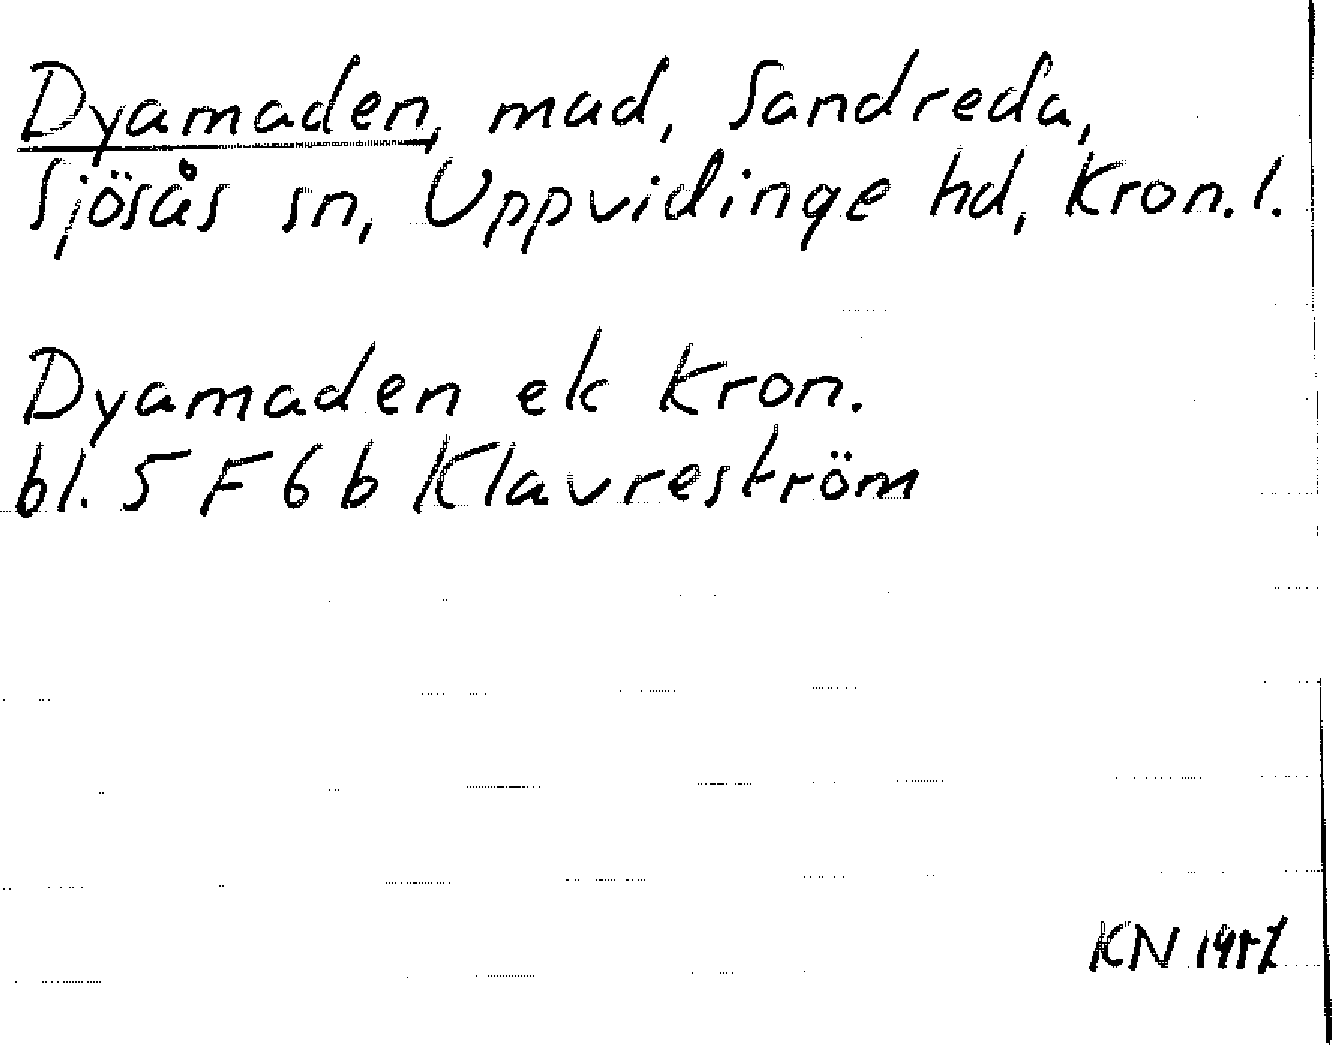 Dyamaden, mad, Sandreda,
Sjösås sn, Uppvidinge hd, Kron. l.
Dyamaden ek Kron.
bl. 5 F 6 b Klavreström
KN